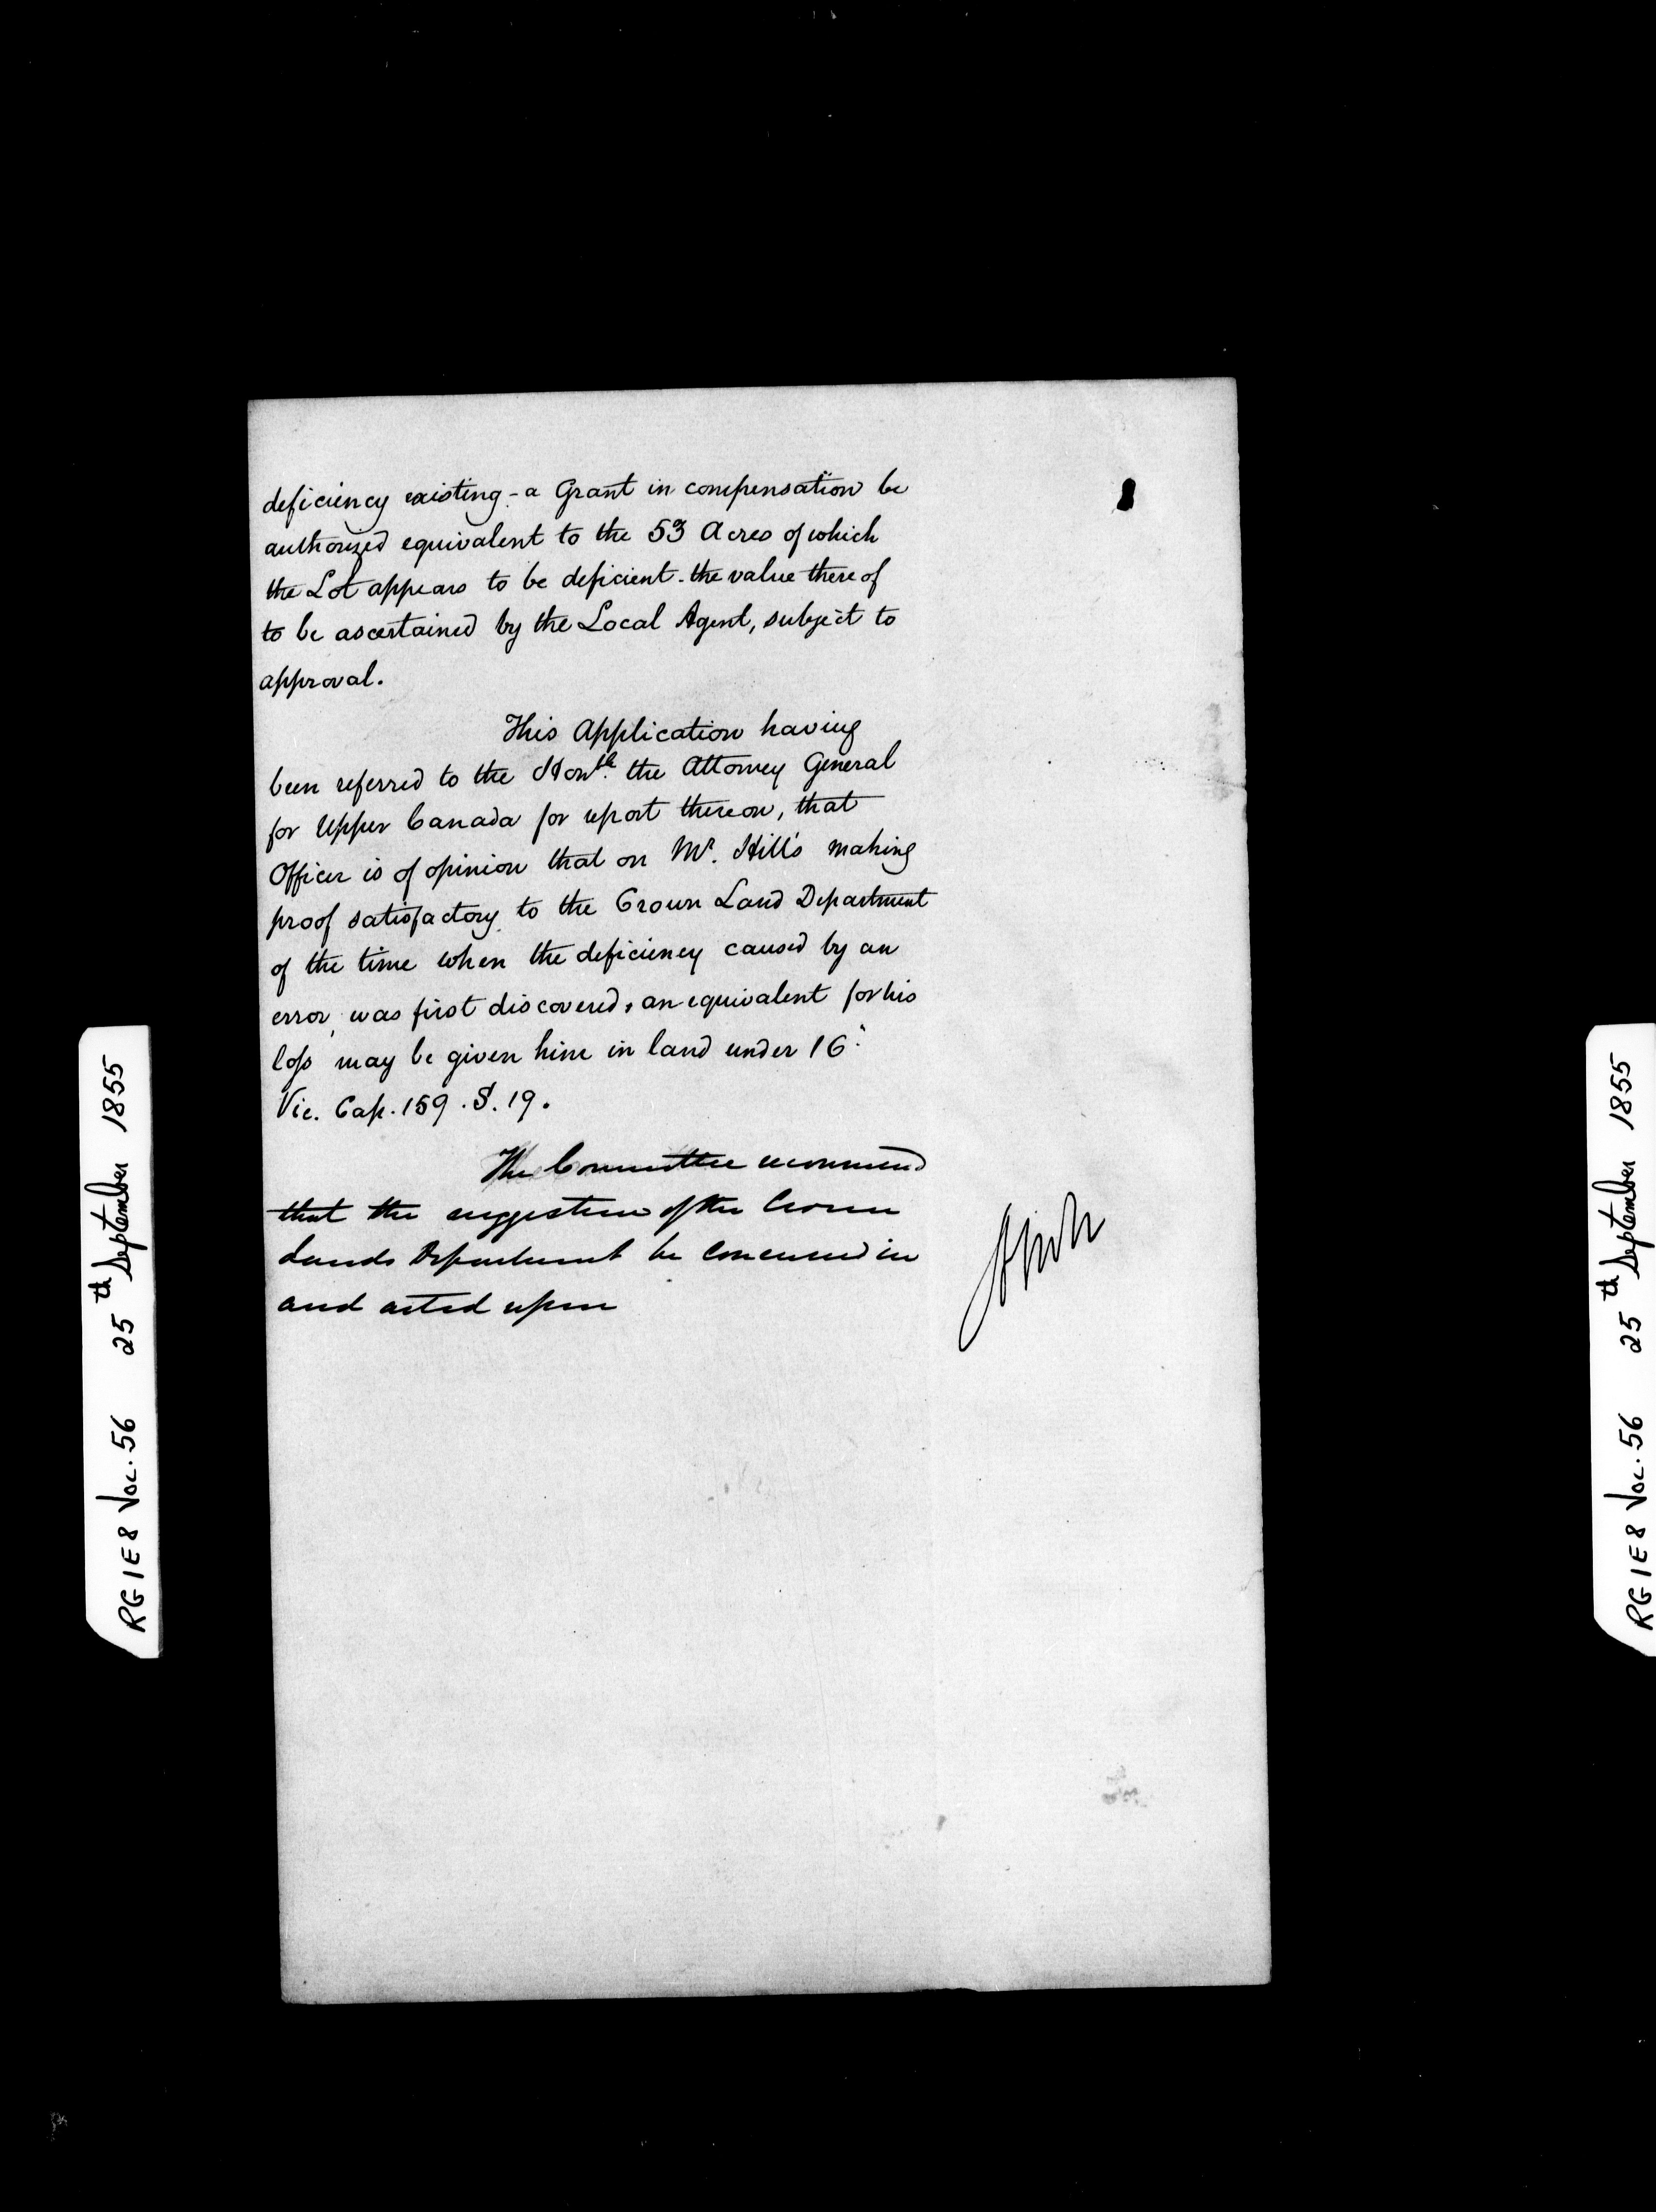 deficiency existing - a Grant in compensation be
authorized equivalent to the 53 Acres of which
the Lot appears to be deficient - the value thereof
to be ascertained by the Local Agent, subject to
approval.
This Application having
been referred to the Honble. the Attorney General
for Upper Canada for report thereon, that
Officer is of opinion that on Mr. Hill's making
proof satisfactory to the Crown Land Department
of the time when the deficiency caused by an
error, was first discovered, an equivalent for his
loss may be given him in land under 16
Vic. Cap. 159. S. 19.
The Committee recommend
that the suggestion of the Crown
Lands Department be concurred in
and acted upon
RG 1 E 8 Vol. 56 25th September 1855
RG 1 E 8 Vol. 56 25th September 1855